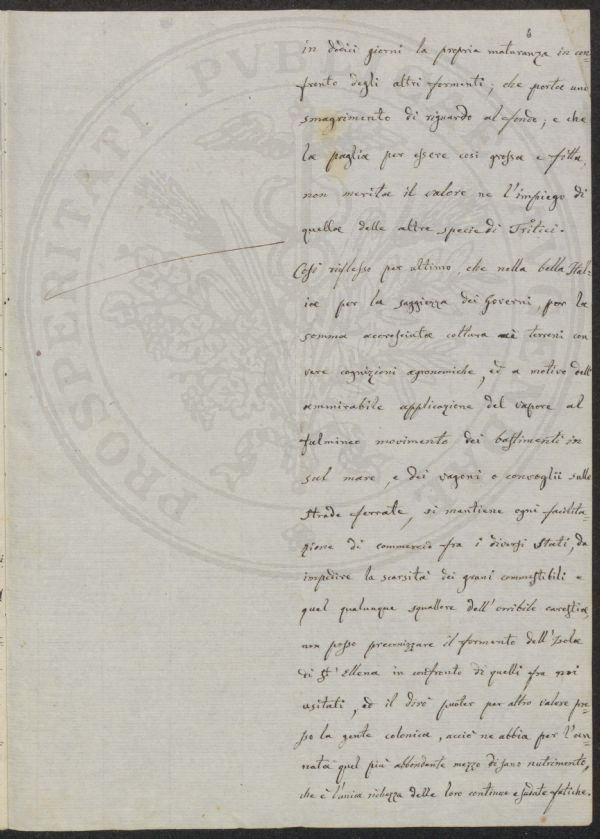 6
in dodici giorni la propria maturanza in con=
fronto degli altri formenti; che porta uno
smagrimento di riguardo al fondo; e che
la paglia per essere così grossa e fitta,
non merita il valore ne l'impiego di
quella delle altre specie di Tritici.
Così riflesso per ultimo, che nella bella Ital=
ia per la saggiezza dei Governi, per la
somma accresciuta coltura ai terreni con
vere cognizioni agronomiche, ed a motivo dell'
ammirabile applicazione del vapore al
fulmineo movimento dei bastimenti in
sul mare, e dei vagoni o convoglii sulle
strade ferrate, si mantiene ogni facilita=
zione di commercio fra i diversi Stati, da
impedire la scarsità dei grani commestibili e
quel qualunque squallore dell'orribile carestia,
non posso preconizzare il formento dell'Isola
di S.t Ellena in confronto di quelli fra noi
usitati, ed il dirò puoter per altro valore pre=
sso la gente colonica, acciò ne abbia per l'an=
nata quel più abbondante mezzo di sano nutrimento,
che è l'unica richezza delle loro continue e sudate fatiche.
PROSPERITATI PVBLICAE